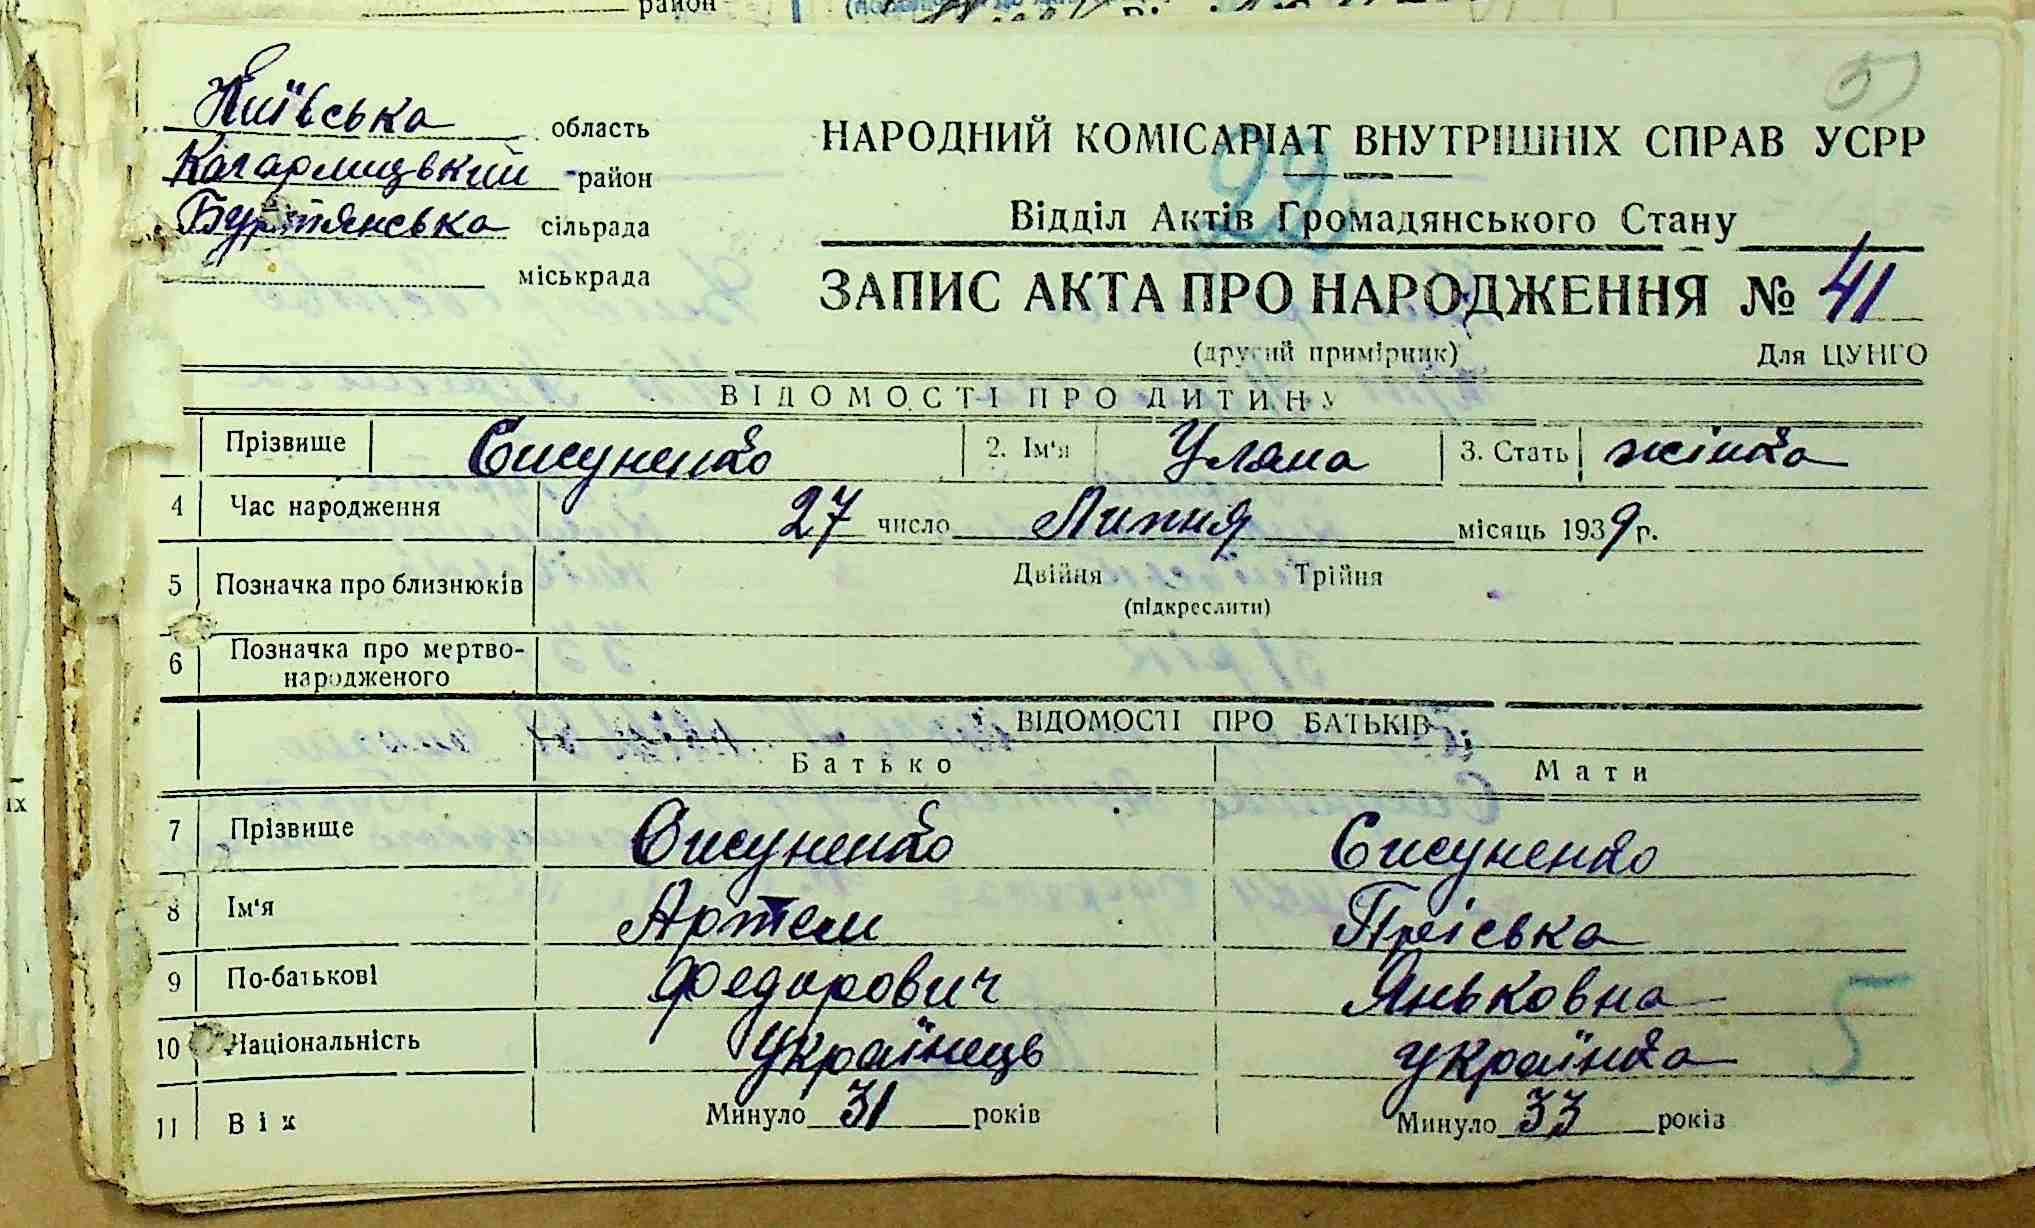 район
Київська область
Кагарлицький район
Буртянська сільрада
міськрада
НАРОДНИЙ КОМІСАРІАТ ВНУТРІШНІХ СПРАВ УСРР
22
Відділ Актів Громадянського Стану
ЗАПИС АКТА ПРО НАРОДЖЕННЯ № 41
(другий примірник) Для ЦУНГО
ВІДОМОСТІ ПРО ДИТИНУ
Прізвище Сисуненко 2. Ім'я Уляна 3. Стать жінка
4 Час народження 27 число Липня місяць 1939 р.
5 Позначка про близнюків Двійня Трійня
(підкреслити)
6 Позначка про мертво-
народженого
ВІДОМОСТІ ПРО БАТЬКІВ
Батько Мати
7 Прізвище Сисуненко Сисуненко
8 Ім'я Артем Пріська
9 По-батькові Федорович Яньковна
10 Національність Українець українка
11 Вік Минуло 31 років Минуло 33 років
5
іх